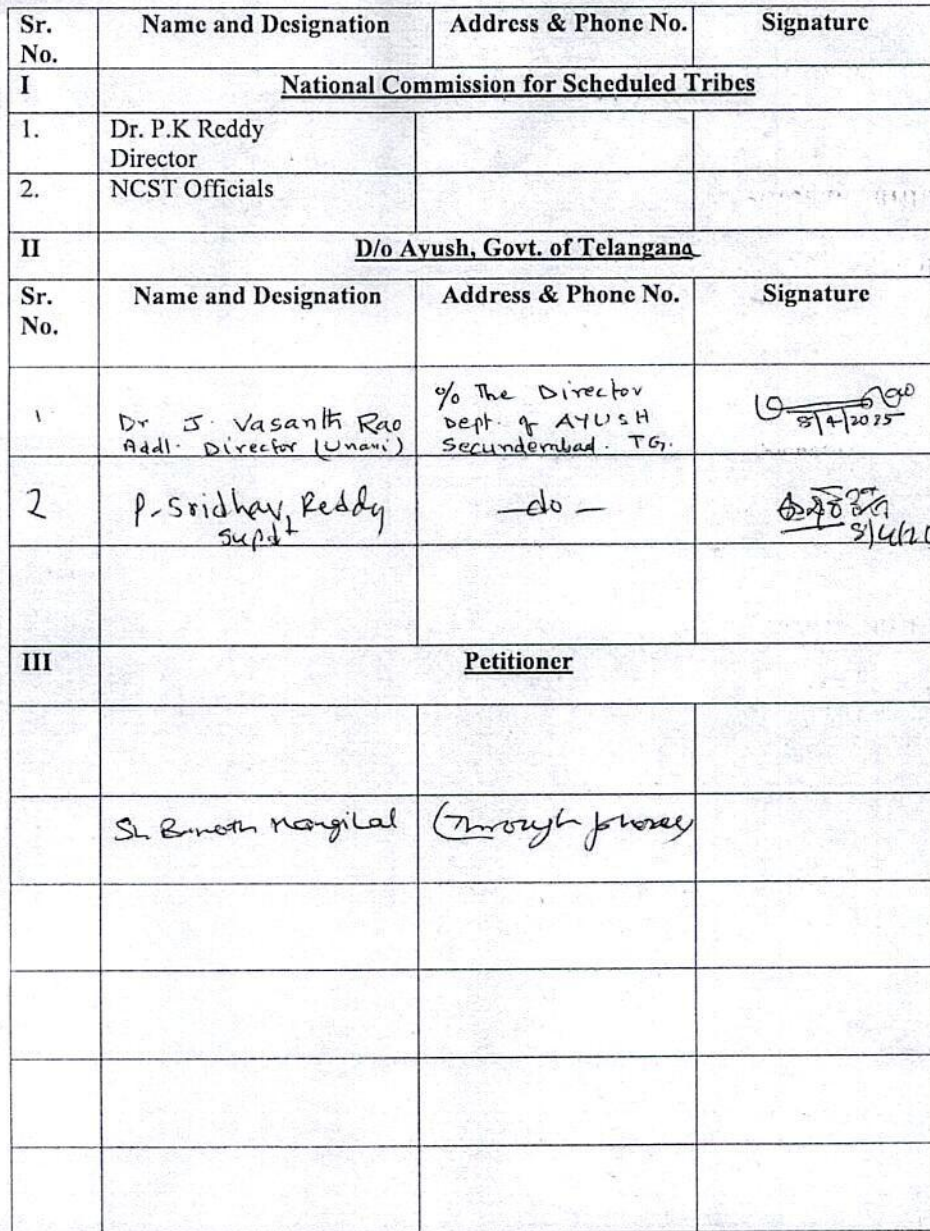 Sr. No. Name and Designation Address & Phone No. Signature
I National Commission for Scheduled Tribes
1. Dr. P.K Reddy
Director
2. NCST Officials
II D/o Ayush, Govt. of Telangana
Sr. No. Name and Designation Address & Phone No. Signature
1 Dr J. Vasanth Rao
Addl. Director (Unani)
% The Director
Dept. of AYUSH
Secunderabad. TG.
8/4/2025
2 P. Sridhar Reddy
Supdt
—do—
8/4/20
III Petitioner
Sh (Through phone)